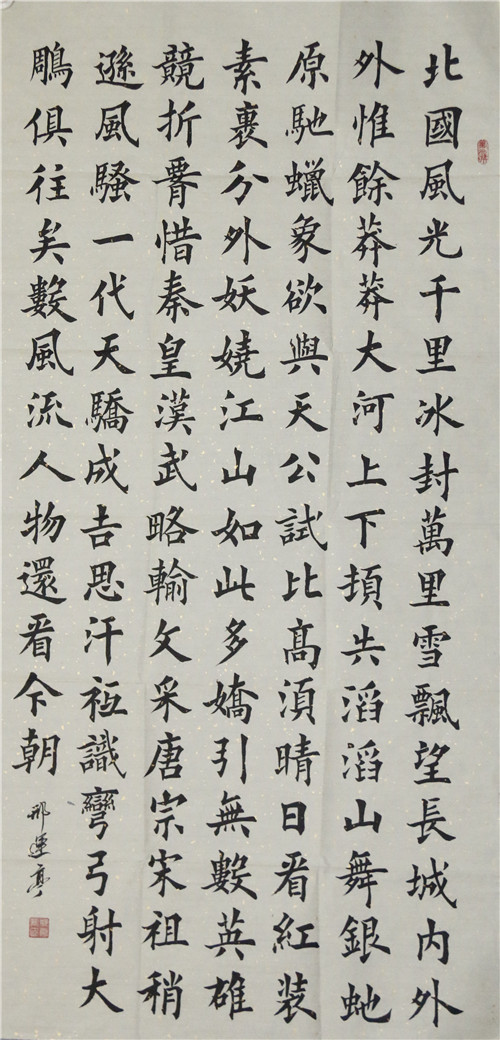 北國風光千里冰封萬里雪飄望長城内外
外惟餘莽莽大河上下頓失滔滔山舞銀虵
原馳蠟象欲與天公試比高須晴日看紅装
素裹分外妖嬈江山如此多嬌引無數英雄
競折腰惜秦皇漢武略輸文采唐宗宋祖稍
遜風騷一代天驕成吉思汗衹識彎弓射大
鵰俱往矣數風流人物還看今朝
邢運亭